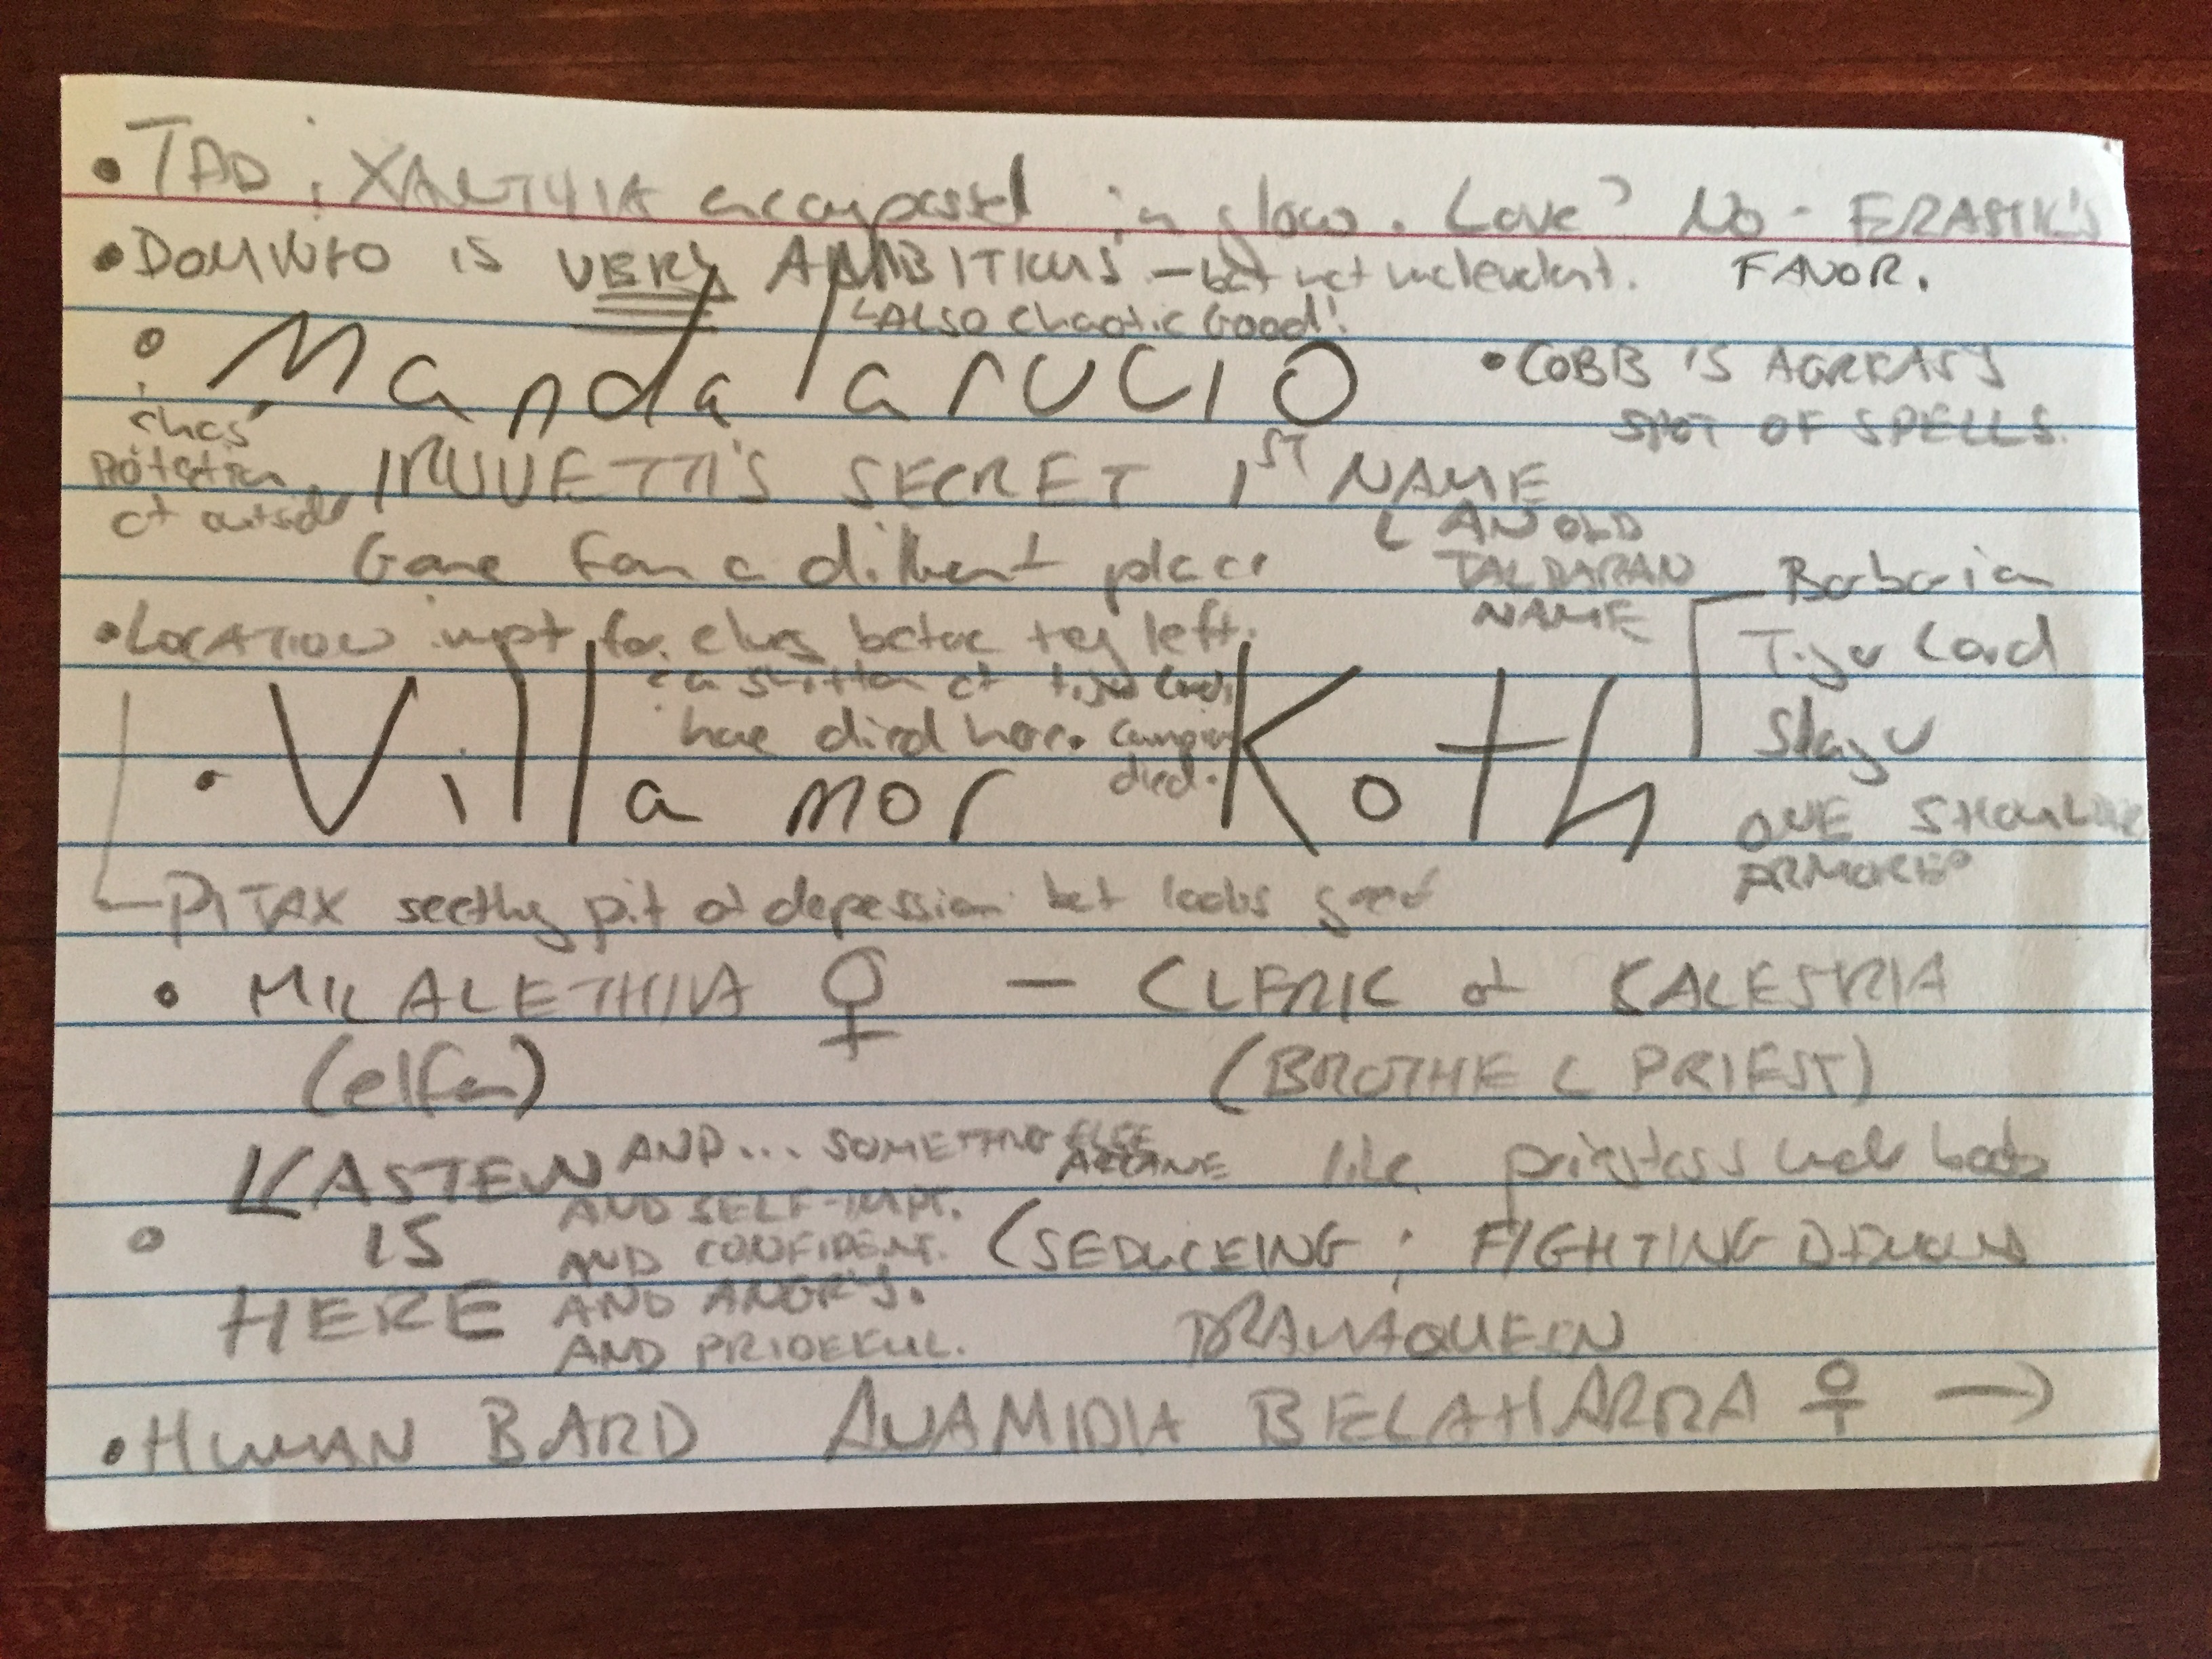 • TAD ; XALTHIA encompassed in glow. Love? No - ERASTIL'S FAVOR.
• DOMINFO IS VERY AMBITIOUS - but not malevolent.
ALSO Chaotic Good!
• Mandalarucio
• COBB IS A GREASY
SPOT OF SPELLS.
IRUUETTI'S SECRET 1ST NAME
AN OLD
TALDARAN
NAME
at outside
Came from a different place
• LOCATION impt for elves before they left.
a shitton of tiger Lords
have died here. Campion
died.
• Villamor Koth
Barbarian
Tiger Lord
Slayer
ONE SHOULDER
ARMORED
PITAX seethg pit of depression but looks good
• MILALETHIVA ♀ - CLERIC of CALESTRIA
(elfen) (BROTHEL PRIEST)
like priestess
• KASTEN IS HERE
AND... SOMETHING ELSE
ARCANE
AND SELF-IMPT.
AND CONFIDENT.
AND ANGRY.
AND PRIDEFUL.
(SEDUCEING ; FIGHTING DEMONS
DRAMAQUEEN
• HUMAN BARD ANAMIDIA BELAHARRA ♀ →